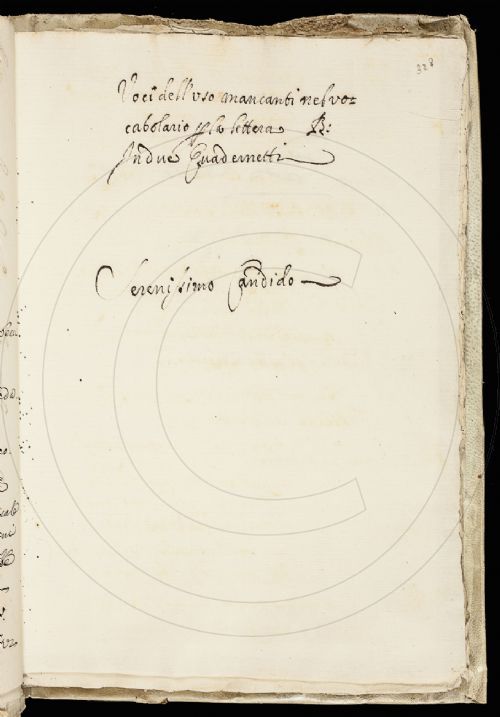 328
Voci dell'uso mancanti nel vo=
cabolario p la lettera B:
In due Quadernetti
Serenissimo Candido